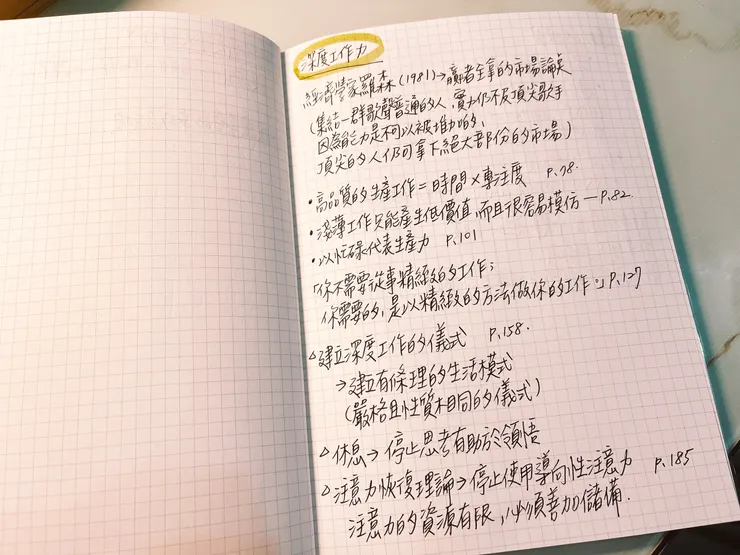 深度工作力
經濟學家羅森(1981)→贏者全拿的市場論点
(集結一群歌聲普通的人,實力仍不及頂尖歌手
因為能力是不可以被堆加的,
頂尖的人仍可拿下絕大部份的市場)
・高品質的生產工作=時間×專注度 P.78.
・淺薄工作只能產生低價值,而且很容易模仿—P.82.
・以忙碌代表生產力 P.101
「你不需要從事精緻的工作;
你需要的,是以精緻的方法做你的工作。」P.127
△建立深度工作的儀式 P.158.
→建立有條理的生活模式
(嚴格且性質相同的儀式)
△休息→停止思考有助於領悟
△注意力恢復理論→停止使用導向性注意力 P.185
注意力的資源有限,必須善加儲備.